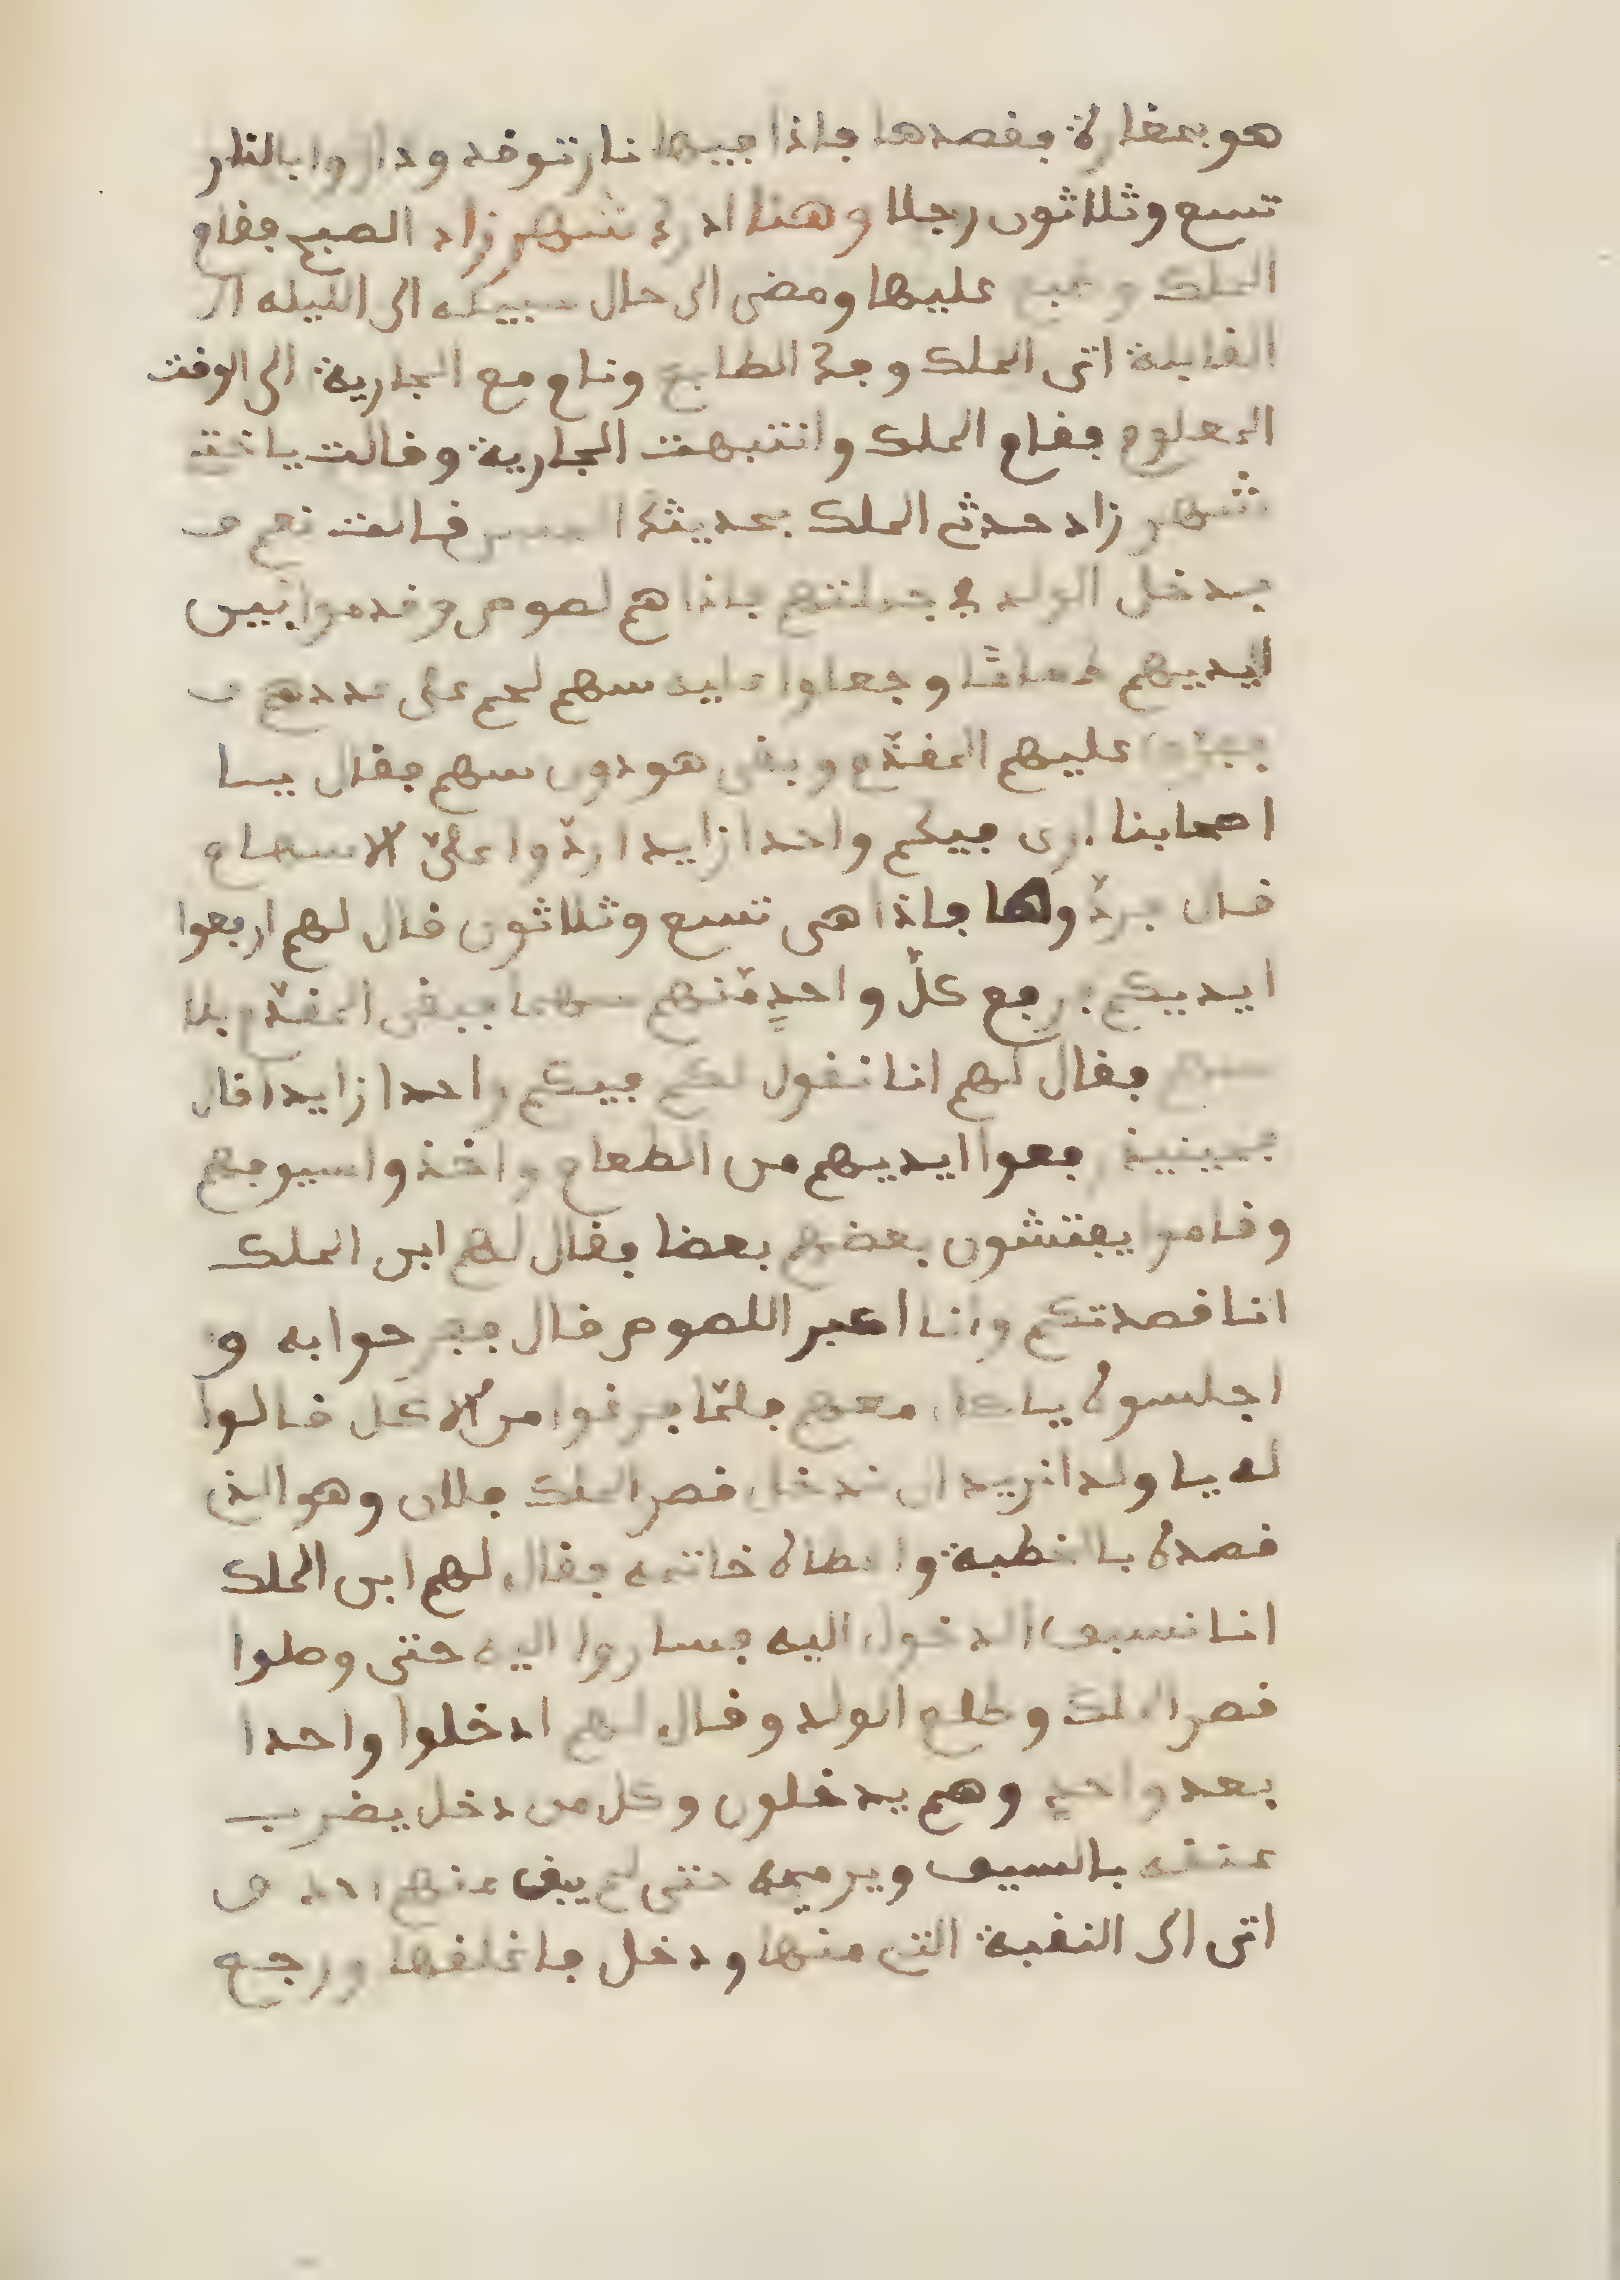 هو بمغارة فقصدها فاذا فيها نار توقد وداروا بالنار
تسع وثلاثون رجلا وهنا ادرك شهرزاد الصبح فقام
الملك وطبع عليها ومضى الى حال سبيله الى الليله ال
القابلة اتى الملك وفك الطابع ونام مع الجارية الى الوقت
المعلوم فقام الملك وانتبهت الجارية وقالت ياختي
شهرزاد حدثي الملك بحديثك الحسن قالت نعم
فدخل الولد في جملتهم فاذا هم لصوص وقدموا بين
ايديهم طعاما وجعلوا سهم لحم على عددهم
عليهم المقدّم وبقى هو دون سهم فقال يا
اصحابنا ارى فيكم واحدا زايدا ردّوا علىّ الاسهام
قال فردّوها فاذا هى تسع وثلاثون قال لهم ارفعوا
ايديكم فرفع كلّ واحدٍ منهم سهما فبقى المقدّم بلا
سهم فقال لهم انا نقول لكم فيكم واحدا زايدا قال
فحينيذ رفعوا ايديهم من الطعام واخذوا سيوفهم
وقاموا يفتشون بعضهم بعضا فقال لهم ابن الملك
انا قصدتكم وانا اكبر اللصوص قال جوابه و
اجلسوه ياكل معهم فلمّا فرغوا من الاكل قالوا
له يا ولد انريد ان ندخل قصر الملك فلان وهو الذي
قصده بالخطبة واعطاه خاتمه فقال لهم ابن الملك
انا نسبق الدخول اليه فساروا اليه حتى وصلوا
قصر الملك وطلع الولد وقال لهم ادخلوا واحدا
بعد واحدٍ وهم يدخلون وكل من دخل يضرب
عنقه بالسيف ويرميه حتى لم يبق منهم احد
اتى الى النقبة التي منها ودخل فاغلقها ورجع